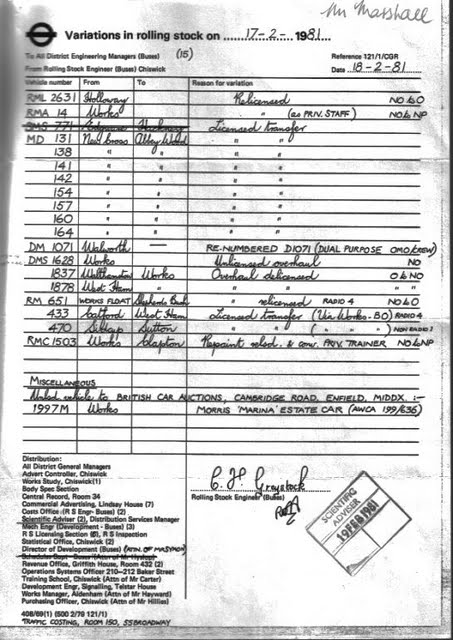 Mr Marshall
Variations in rolling stock on 17-2- 1981
To All District Engineering Managers (Buses) (15) Reference 121/1/CGR
From Rolling Stock Engineer (Buses) Chiswick Date 18-2-81
Vehicle number From To Reason for variation
RML 2631 Holloway Relicensed NO to O
RMA 14 Works " (as PRIV. STAFF) NO to NP
DMS 771 Hackney Licensed transfer
MD 131 New Cross Abbey Wood
138 " " " "
141 " "
142 " "
154 " "
157 " "
160 " "
164 " "
DM 1071 Walworth — RE-NUMBERED D1071 (DUAL PURPOSE OMO/CREW)
DMS 1628 Works Unlicensed overhaul NO
1837 Walthamstow Works Overhaul delicensed O to NO
1878 West Ham " " " "
RM 651 WORKS FLOAT Shepherds Bush " relicensed RADIO 4 NO to O
433 Catford West Ham Licensed transfer (Via Works-BO) RADIO 4
470 Sidcup Sutton " " ( " " " ) NON RADIO
RMC 1503 Works Clapton Repaint relicd. & conv. PRIV. TRAINER NO to NP
MISCELLANEOUS
Noted vehicle to BRITISH CAR AUCTIONS, CAMBRIDGE ROAD, ENFIELD, MIDDX. :-
1997M Works MORRIS 'MARINA' ESTATE CAR (AWCA 199/636)
Distribution:
All District General Managers
Advert Controller, Chiswick
Works Study, Chiswick(1)
Body Spec Section
Central Record, Room 34
Commercial Advertising, Lindsay House (7)
Costs Office (R S Engr- Buses) (2)
Scientific Adviser (2), Distribution Services Manager
Main Engr (Development - Buses) (3)
R S Licensing Section (6), R S Inspection
Statistical Office, Chiswick (2)
Director of Development (Buses) (ATTN. OF MASYMON)
Schedules Dept - Buses (Attn of Mr Hyslop)
Revenue Office, Griffith House, Room 432 (2)
Operations Systems Officer 210-212 Baker Street
Training School, Chiswick (Attn of Mr Carter)
Development Engr, Signalling, Telstar House
Works Manager, Aldenham (Attn of Mr Hayward)
Purchasing Officer, Chiswick (Attn of Mr Hillies)
C. H. Greystock
Rolling Stock Engineer (Buses)
SCIENTIFIC
ADVISER
19 FEB 1981
40B/69(1) (500 2/79 121/1)
TRAFFIC COSTING, ROOM 150, 55 BROADWAY